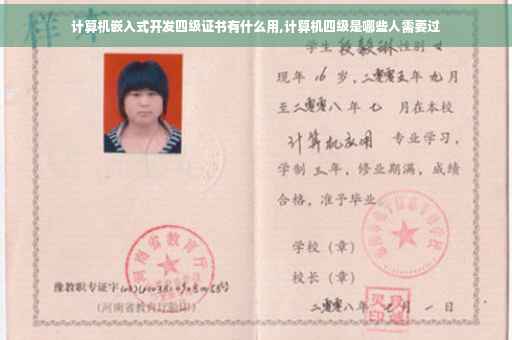 计算机嵌入式开发四级证书有什么用,计算机四级是哪些人需要过
样本
学生 段毅琳 性别 女
现年 16 岁，二零零五年 九 月
至二零零八年 七 月在本校
计算机应用 专业学习，
学制 三 年，修业期满，成绩
合格，准予毕业
学校（章）
校长（章）
河南省教育厅
豫教职专证字
(河南省教育厅验印)
二零零八年 七 月 一 日